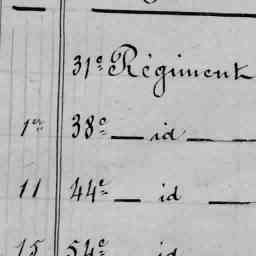 31e Régiment
1er 38e — id —
11 44e — id —
15 54e id